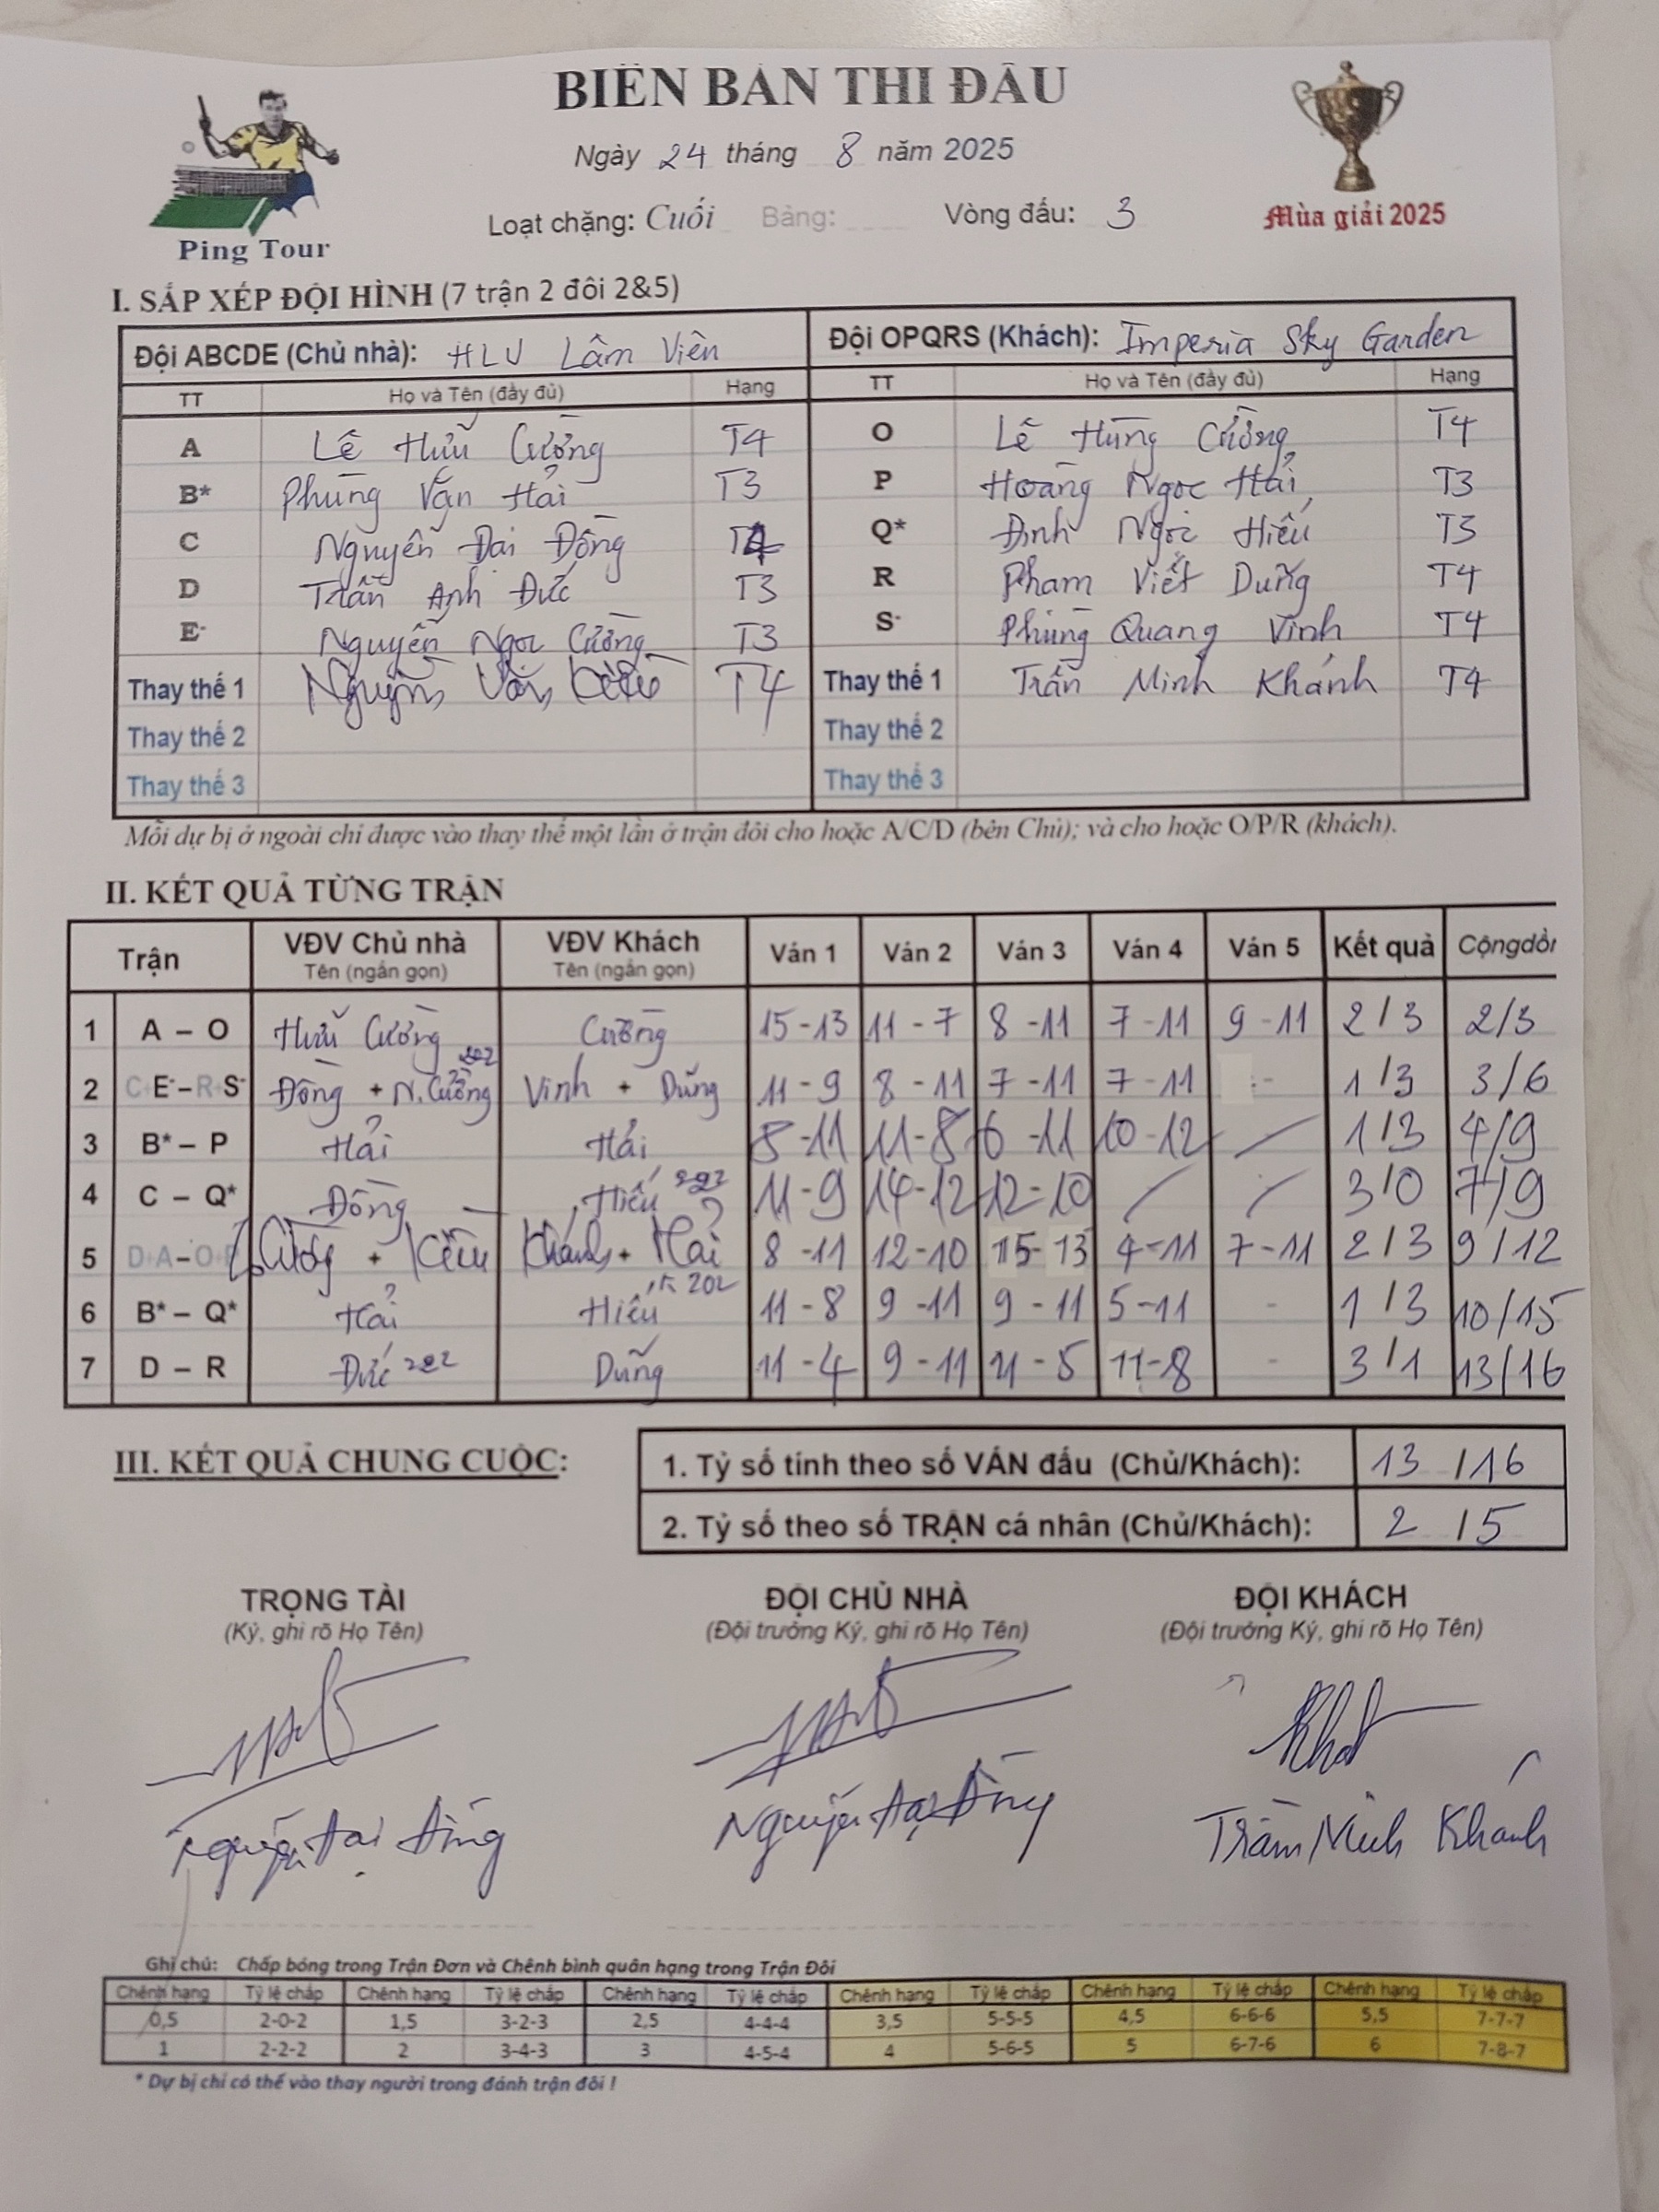 BIÊN BẢN THI ĐẤU
Ngày 24 tháng 8 năm 2025
Loạt chặng: Cuối Bảng: Vòng đấu: 3
Ping Tour
Mùa giải 2025
I. SẮP XẾP ĐỘI HÌNH (7 trận 2 đôi 2&5)
Đội ABCDE (Chủ nhà): HLV Lâm Viên Đội OPQRS (Khách): Imperia Sky Garden
TT Họ và Tên (đầy đủ) Hạng TT Họ và Tên (đầy đủ) Hạng
A Lê Hữu Cường T4 O Lê Hùng Cường T4
B* Phùng Văn Hải T3 P Hoàng Ngọc Hải T3
C Nguyễn Đại Đồng T4 Q* Đinh Ngọc Hiếu T3
D Trần Anh Đức T3 R Phạm Viết Dũng T4
E- Nguyễn Ngọc Cường T3 S- Phùng Quang Vinh T4
Thay thế 1 Nguyễn Văn T4 Thay thế 1 Trần Minh Khánh T4
Thay thế 2 Thay thế 2
Thay thế 3 Thay thế 3
Mỗi dự bị ở ngoài chỉ được vào thay thế một lần ở trận đôi cho hoặc A/C/D (bên Chủ); và cho hoặc O/P/R (khách).
II. KẾT QUẢ TỪNG TRẬN
Trận VĐV Chủ nhà VĐV Khách Ván 1 Ván 2 Ván 3 Ván 4 Ván 5 Kết quả Cộngdồn
Tên (ngắn gọn) Tên (ngắn gọn)
1 A – O Hữu Cường Cường 15-13 11-7 8-11 7-11 9-11 2/3 2/3
2 C+E- – R+S- Đồng + N.Cường 202 Vinh + Dũng 11-9 8-11 7-11 7-11 - 1/3 3/6
3 B* – P Hải Hải 8-11 11-8 6-11 10-12 / 1/3 4/9
4 C – Q* Đồng – Hiếu 11-9 14-12 12-10 / / 3/0 7/9
5 D+A – O+P Cường + Khánh + Hải 8-11 12-10 15-13 4-11 7-11 2/3 9/12
6 B* – Q* Hải Hiếu 202 11-8 9-11 9-11 5-11 - 1/3 10/15
7 D – R Đức 222 Dũng 11-4 9-11 11-5 11-8 - 3/1 13/16
III. KẾT QUẢ CHUNG CUỘC:
1. Tỷ số tính theo số VÁN đấu (Chủ/Khách): 13/16
2. Tỷ số theo số TRẬN cá nhân (Chủ/Khách): 2/5
TRỌNG TÀI ĐỘI CHỦ NHÀ ĐỘI KHÁCH
(Ký, ghi rõ Họ Tên) (Đội trưởng Ký, ghi rõ Họ Tên) (Đội trưởng Ký, ghi rõ Họ Tên)
Nguyễn Đại Đồng Nguyễn Đại Đồng Trần Minh Khánh
Ghi chú: Chấp bóng trong Trận Đơn và Chênh bình quân hạng trong Trận Đôi
Chênh hạng Tỷ lệ chấp Chênh hạng Tỷ lệ chấp Chênh hạng Tỷ lệ chấp Chênh hạng Tỷ lệ chấp Chênh hạng Tỷ lệ chấp Chênh hạng Tỷ lệ chấp
0,5 2-0-2 1,5 3-2-3 2,5 4-4-4 3,5 5-5-5 4,5 6-6-6 5,5 7-7-7
1 2-2-2 2 3-4-3 3 4-5-4 4 5-6-5 5 6-7-6 6 7-8-7
* Dự bị chỉ có thể vào thay người trong đánh trận đôi !